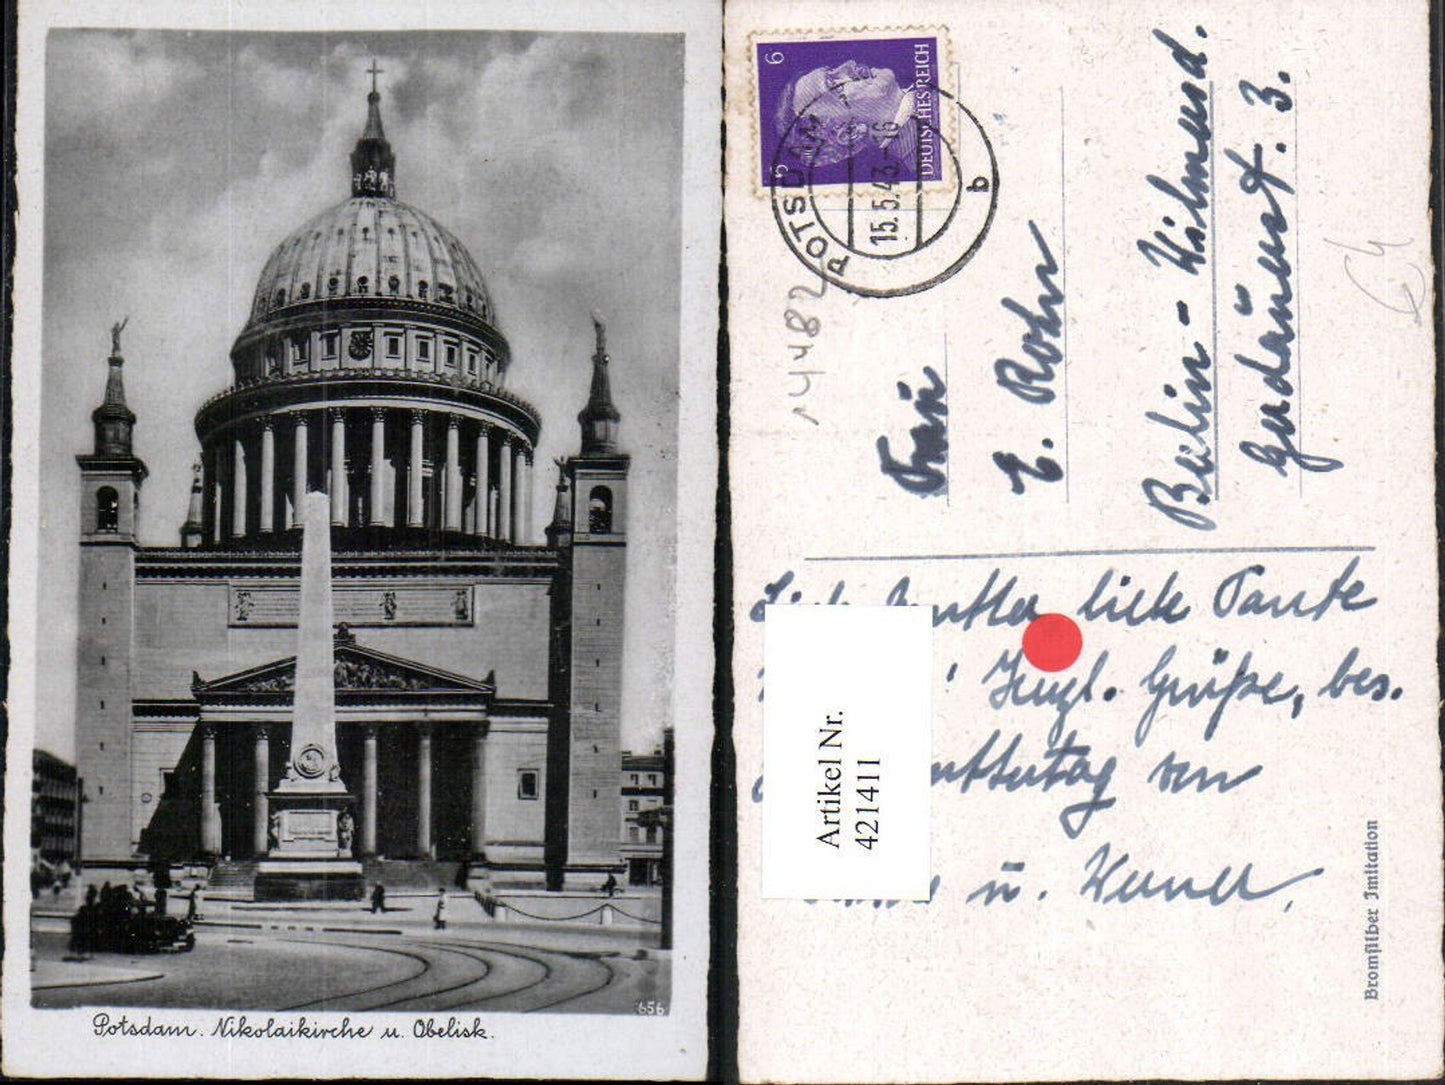 656
Potsdam. Nikolaikirche u. Obelisk.
6 6
DEUTSCHES REICH
POTSDAM
15.5.43.-16
b
14482
Frau
E. Rohr
Berlin - Wilmersd.
3.
liebe Tante
! Herzl. Grüße, bes.
von
u. Werner,
Artikel Nr.
421411
Bromsilber Imitation